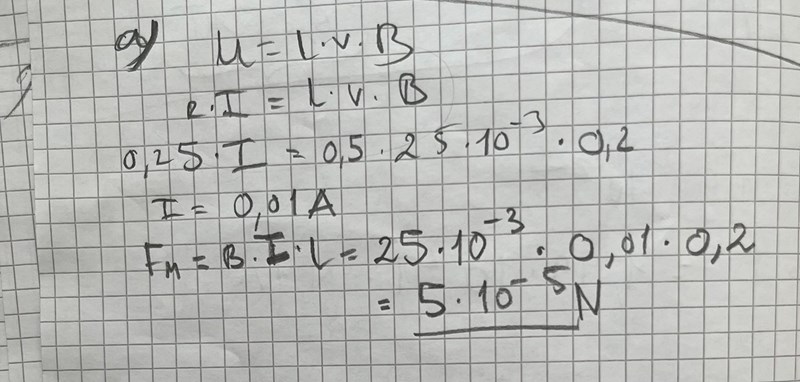 a) U = l·v·B
R·I = l·v·B
0,25·I = 0,5·25·10⁻³·0,2
I = 0,01A
Fm = B·I·l = 25·10⁻³·0,01·0,2
= 5·10⁻⁵N